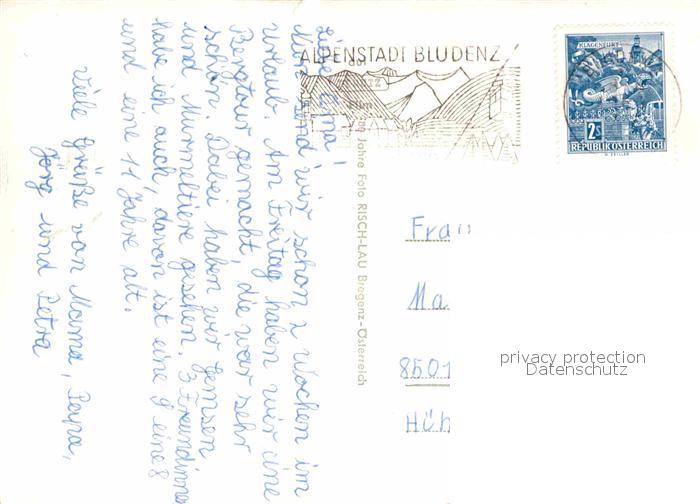 Liebe Oma!
Nun sind wir schon 2 Wochen im
Urlaub. Am Freitag haben wir eine
Bergtour gemacht, die war sehr
schön. Dabei haben wir Gemsen
und Murmeltiere gesehen. 3 Freundinnen
habe ich auch, davon ist eine 9 eine 8
und eine 11 Jahre alt.
Viele Grüße von Mama, Papa,
Jörg und Petra
ALPENSTADT BLUDENZ
Jahre Foto RISCH-LAU Bregenz-Österreich
KLAGENFURT
2S
REPUBLIK ÖSTERREICH
Frau
Ma
8501
Hüh
privacy protection
Datenschutz